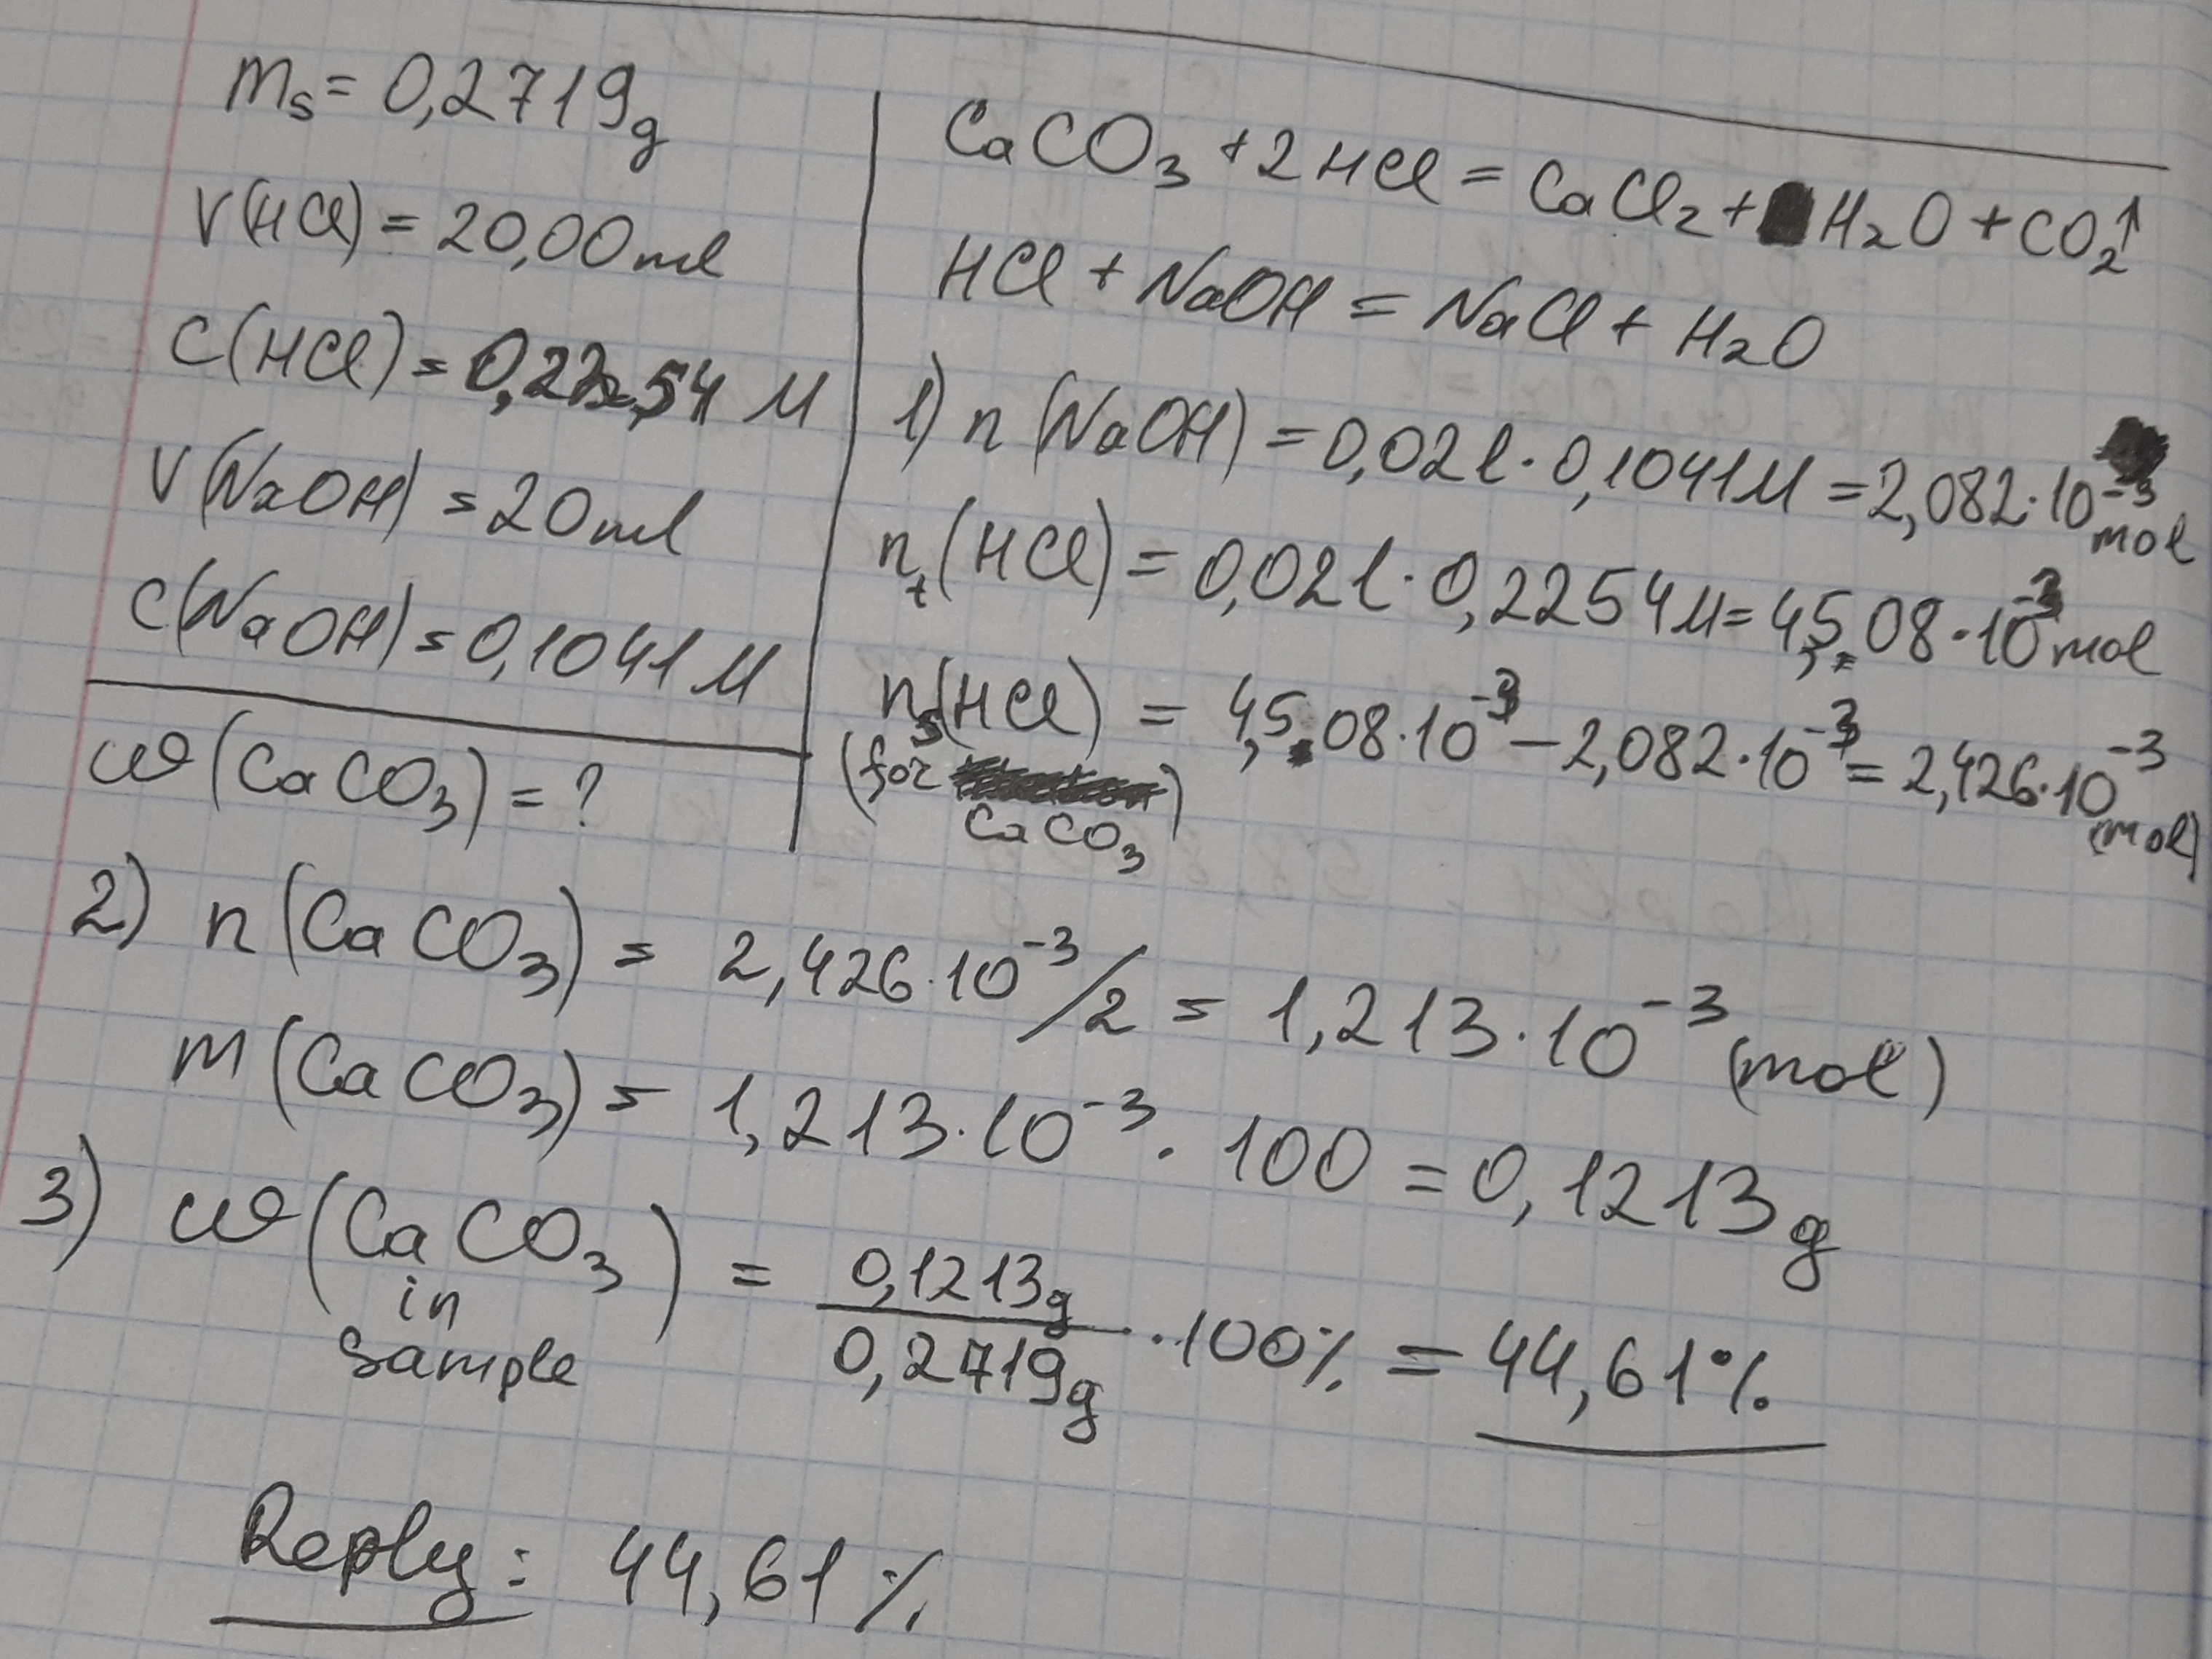 mₛ = 0,2719g
V(HCl) = 20,00 ml
C(HCl) = 0,2254 M
V(NaOH) = 20 ml
C(NaOH) = 0,1041 M
ω(CaCO₃) = ?
CaCO₃ + 2HCl = CaCl₂ + H₂O + CO₂↑
HCl + NaOH = NaCl + H₂O
1) n(NaOH) = 0,02 l · 0,1041 M = 2,082 · 10⁻³ mol
nₜ(HCl) = 0,02 l · 0,2254 M = 4,508 · 10⁻³ mol
nₛ(HCl) = 4,508 · 10⁻³ – 2,082 · 10⁻³ = 2,426 · 10⁻³ (mol)
(for CaCO₃)
2) n(CaCO₃) = 2,426 · 10⁻³/2 = 1,213 · 10⁻³ (mol)
m(CaCO₃) = 1,213 · 10⁻³ · 100 = 0,1213 g
3) ω(CaCO₃ in sample) = 0,1213g / 0,2719g · 100% = 44,61%
Reply: 44,61%